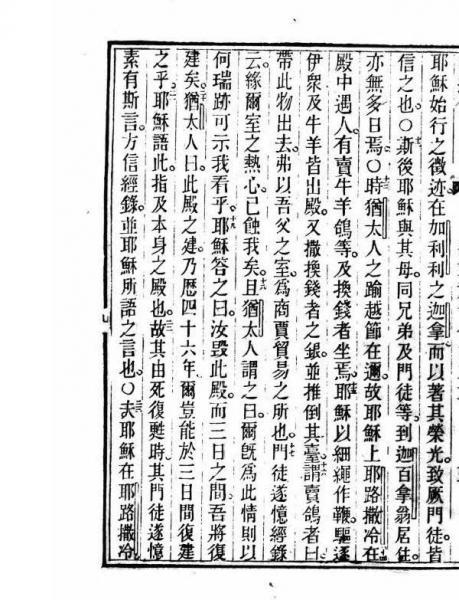 耶穌始行之徵迹在加利利之迦拿而以著其榮光致厥門徒皆
信之也。○斯後耶穌與其母同兄弟及門徒等到迦百拿翁居徒
亦無多日焉。○時猶太人之踰越節在邇故耶穌上耶路撒冷在
殿中遇人有賣牛羊鴿等及換錢者坐焉。耶穌以細繩作鞭驅逐
伊衆及牛羊皆出殿。又撒換錢者之銀並推倒其臺。謂賣鴿者曰
帶此物出去弗以吾父之室爲商賈貿易之所也。門徒遂憶經錄
云緣爾室之熱心已蝕我矣。且猶太人謂之曰爾旣爲此情則以
何瑞跡可示我看乎。耶穌答之曰汝毀此殿而三日之間吾將復
建矣。猶太人曰此殿之建乃歷四十六年爾豈能於三日間復建
之乎。耶穌語此指及本身之殿也。故其由死復甦時其門徒遂憶
素有斯言。方信經錄並耶穌所語之言也。○夫耶穌在耶路撒冷